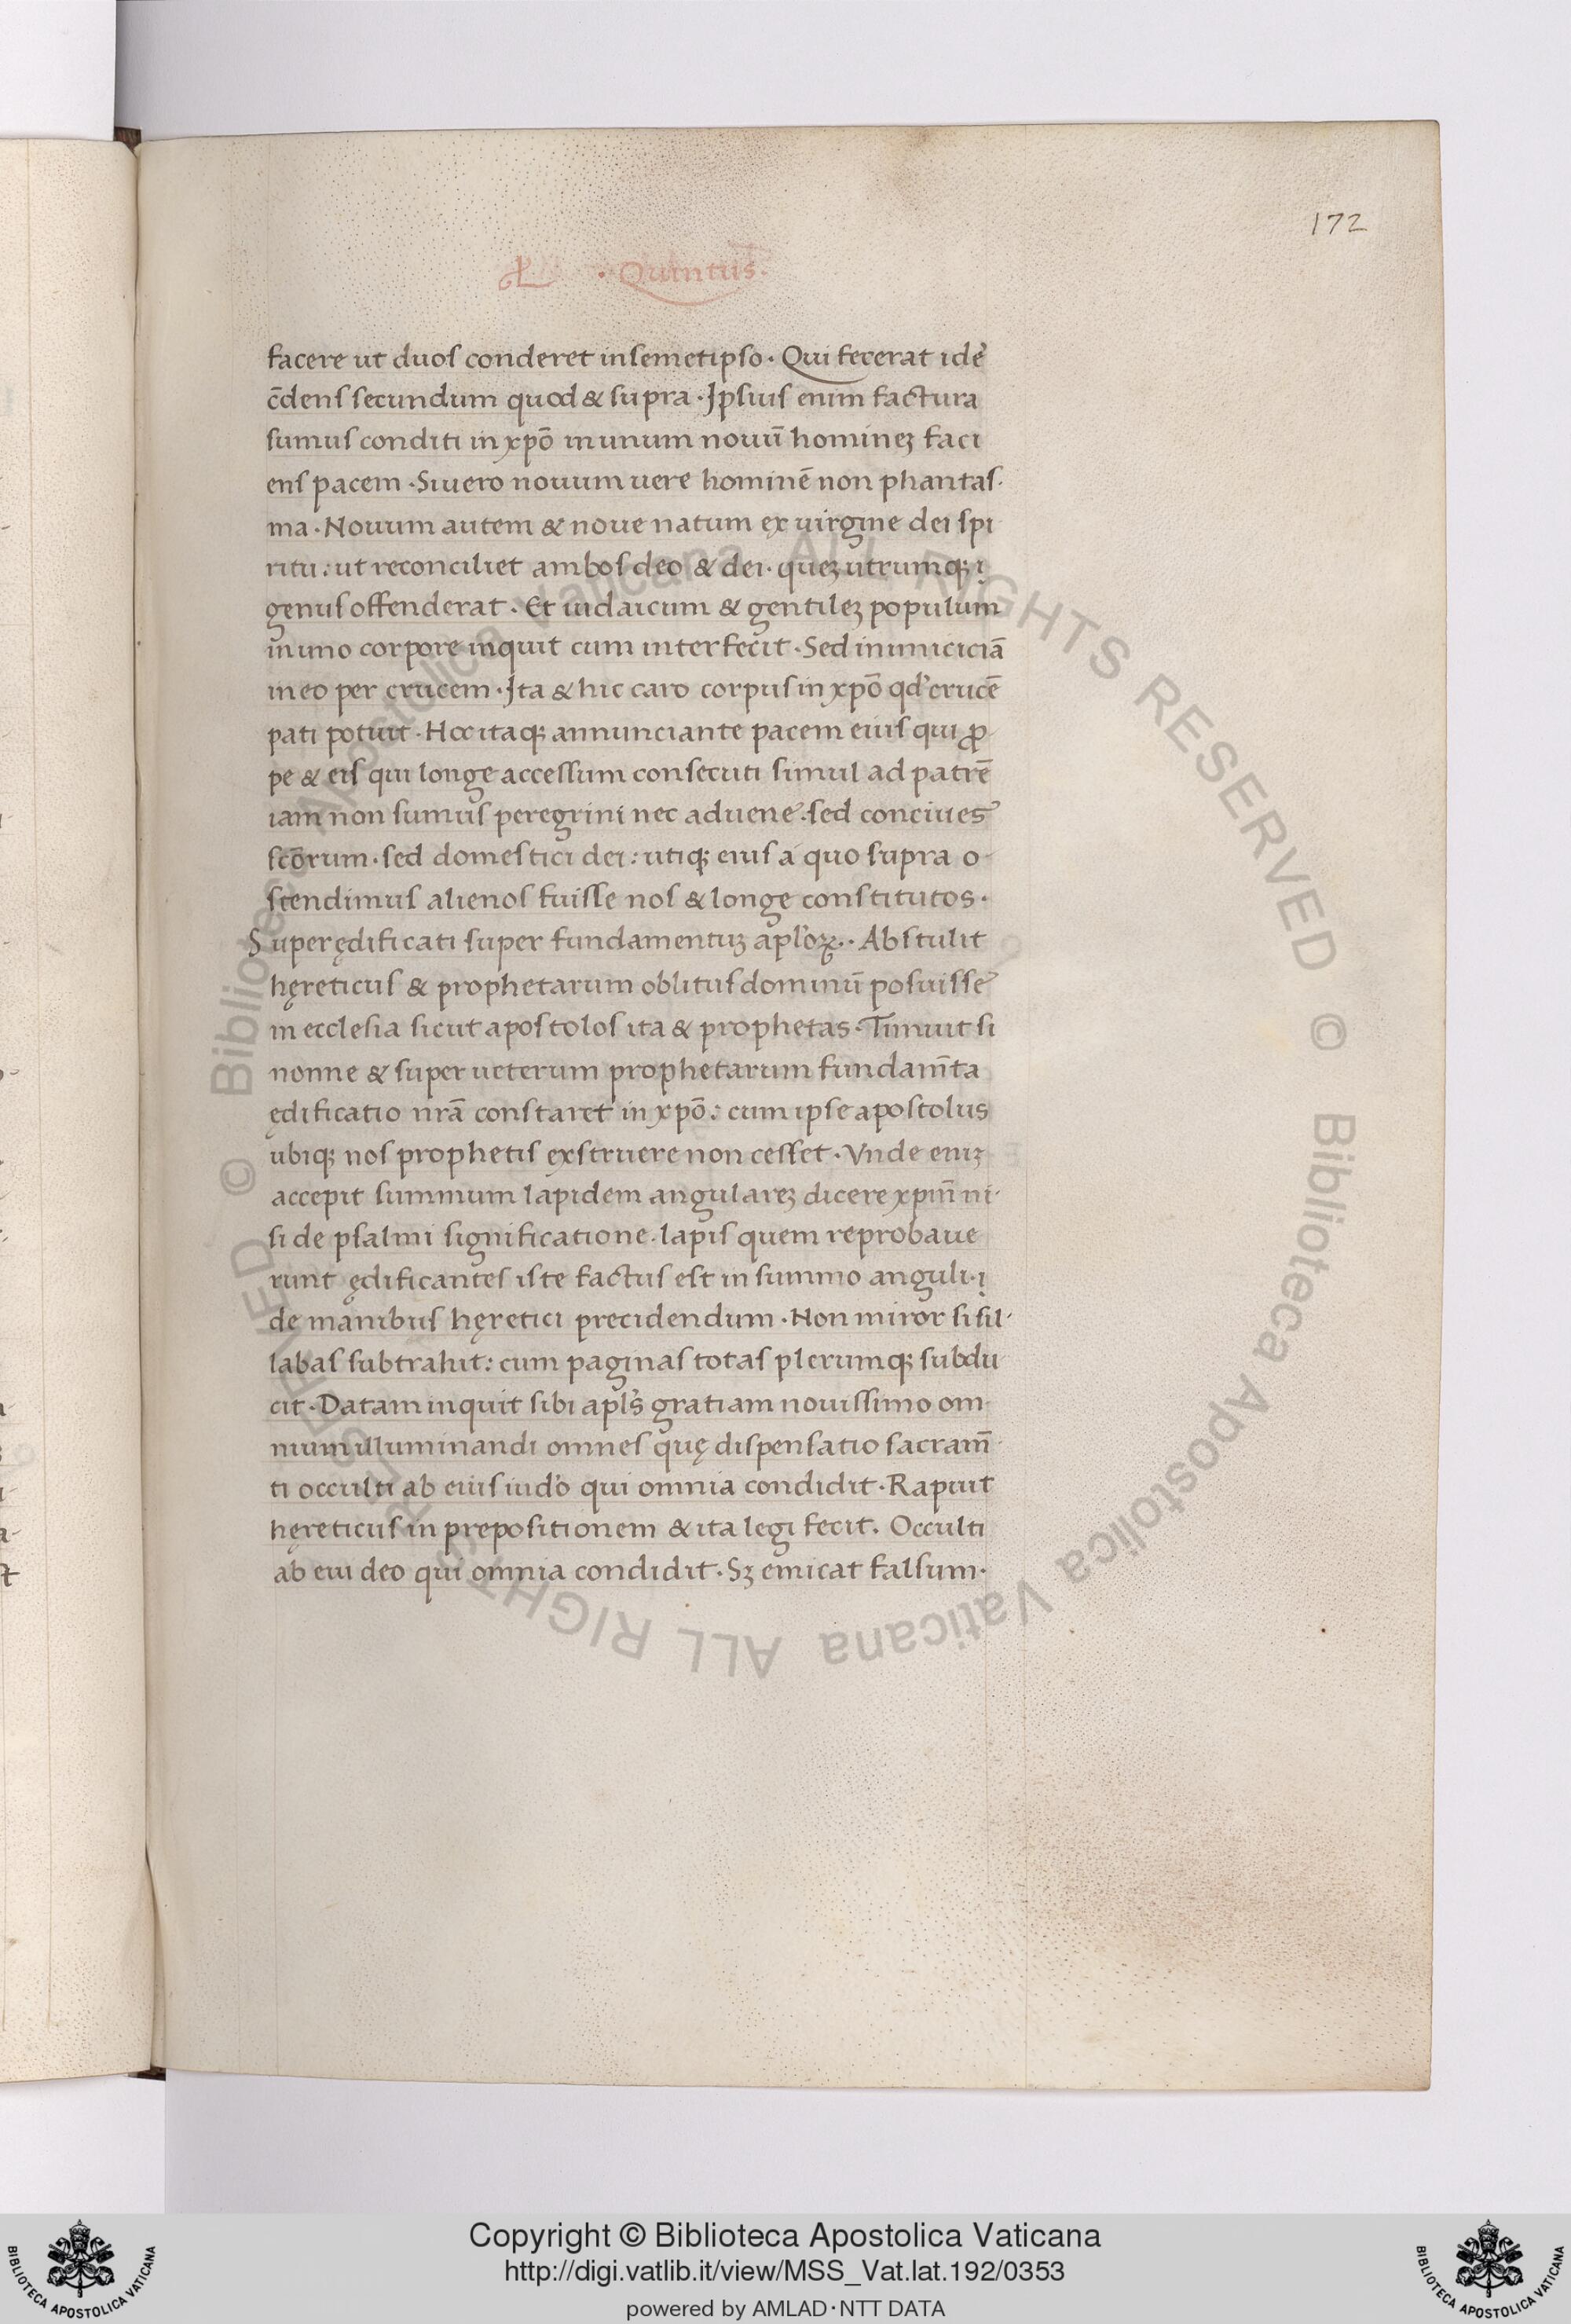 172
L · Quintus ·
facere ut duos conderet in semetipso · Qui fecerat idē
c̄dens secundum quod & supra · Ipsius enim factura
sumus conditi in xpō in unum nouū homineȝ faci
ens pacem · Si uero nouum uere hominē non phantas ·
ma · Nouum autem & noue natum ex uirgine dei spi
ritu : ut reconciliet ambos deo & dei · queȝ utrumqȝ ·
genus offenderat · Et iudaicum & gentileȝ populum
in uno corpore inquit cum interfecit · Sed inimiciciā
in eo per crucem · Ita & hic caro corpus in xpō qd' crucē
pati potuit · Hoc itaqȝ annunciante pacem eius qui ꝓ
pe & eis qui longe accessum consecuti simul ad patrē
iam non sumus peregrini nec aduene · sed conciues
scōrum · sed domestici dei : utiqȝ eius a quo supra o-
stendimus alienos fuisse nos & longe constitutos ·
Superędificati super fundamentuȝ apl'oꝝ · · Abstulit
hęreticus & prophetarum oblitus dominū posuisse
in ecclesia sicut apostolos ita & prophetas · Timuit si
nonne & super ueterum prophetarum fundam̄ta
ędificatio nrā constaret in xpō : cum ipse apostolus
ubiqȝ nos prophetis exstruere non cesset · Vnde eniȝ
accepit summum lapidem angulareȝ dicere xpm̄ ni ·
si de psalmi significatione · lapis quem reprobaue
runt ędificantes iste factus est in summo anguli ·
de manibus hęretici precidendum · Non miror si sil ·
labas subtrahit : cum paginas totas plerumqȝ subdu
cit · Datam inquit sibi apl's gratiam nouissimo om
nium illuminandi omnes quę dispensatio sacram̄
ti occulti ab eius iud'o qui omnia condidit · Rapuit
hęreticus in prepositionem & ita legi fecit · Occulti
ab eui deo qui omnia condidit · Sȝ emicat falsum ·
© Biblioteca Apostolica Vaticana ALL RIGHTS RESERVED © Biblioteca Apostolica Vaticana ALL RIGHTS RESERVED
BIBLIOTECA APOSTOLICA VATICANA
Copyright © Biblioteca Apostolica Vaticana
http://digi.vatlib.it/view/MSS_Vat.lat.192/0353
powered by AMLAD · NTT DATA
BIBLIOTECA APOSTOLICA VATICANA